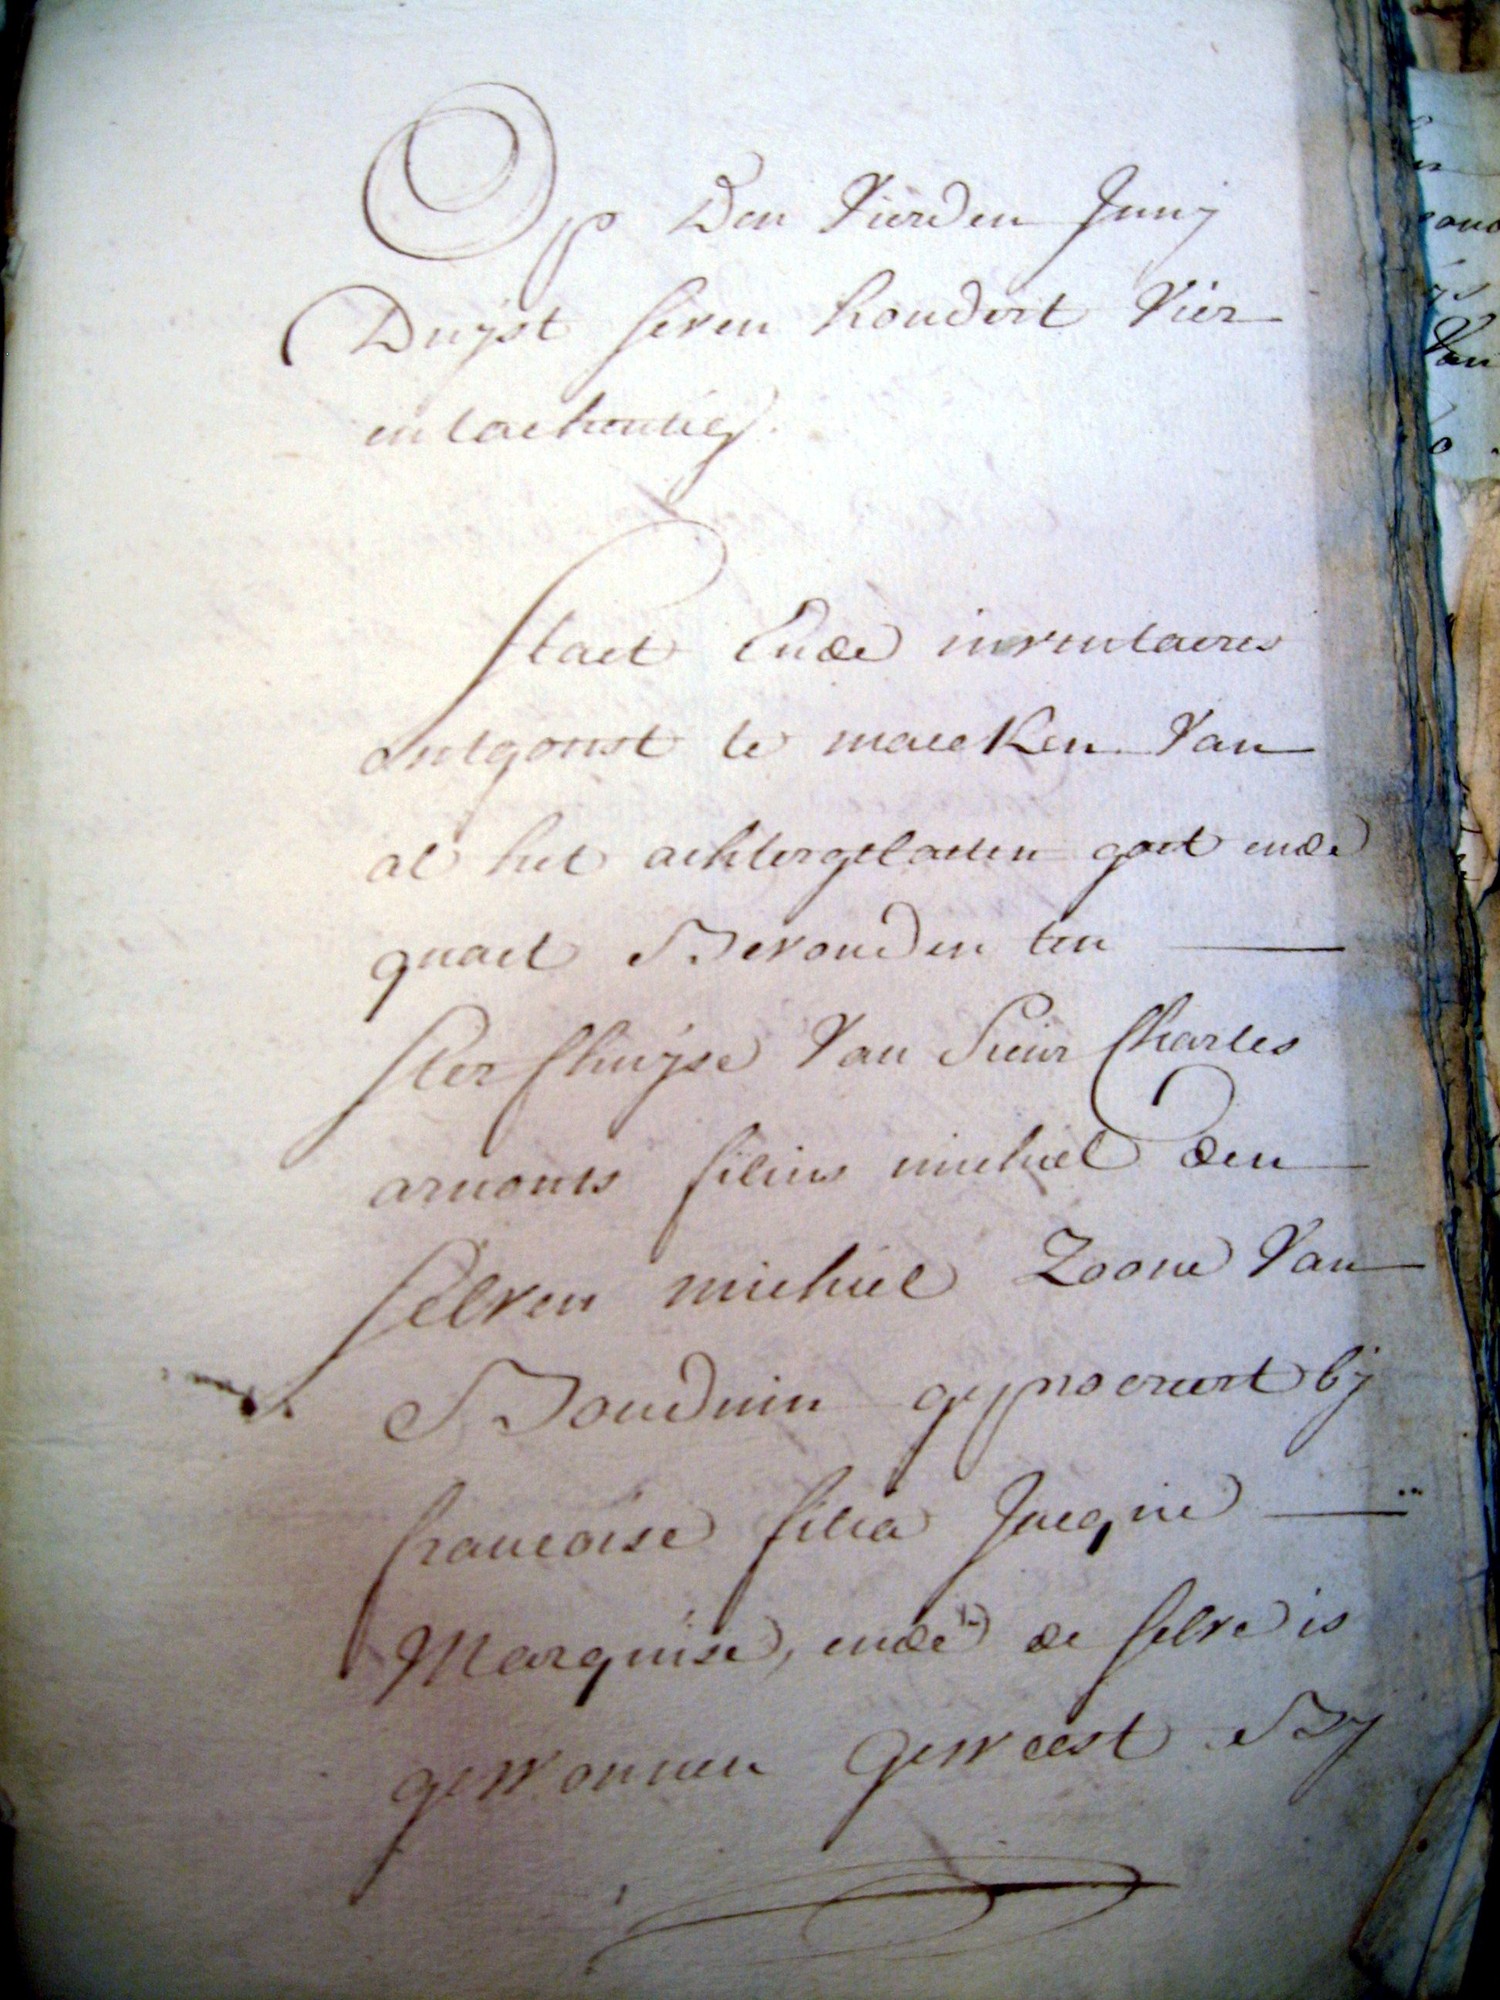 Op Den Vierden Junij
Duijst seven hondert Vier
en tachentig.
Staet Ende inventaires
omtgonst te maecken Van
al het achtergelaeten goet ende
quaet Bevonden ten
sterfhuijse Van Sieur Charles
arnouts filius michiel den
selven michiel Zoone Van
Bouduin geprocreert bij
francoise filia Jacque
Marquise, ende de selve is
gewonnen Geweest By
en
Van